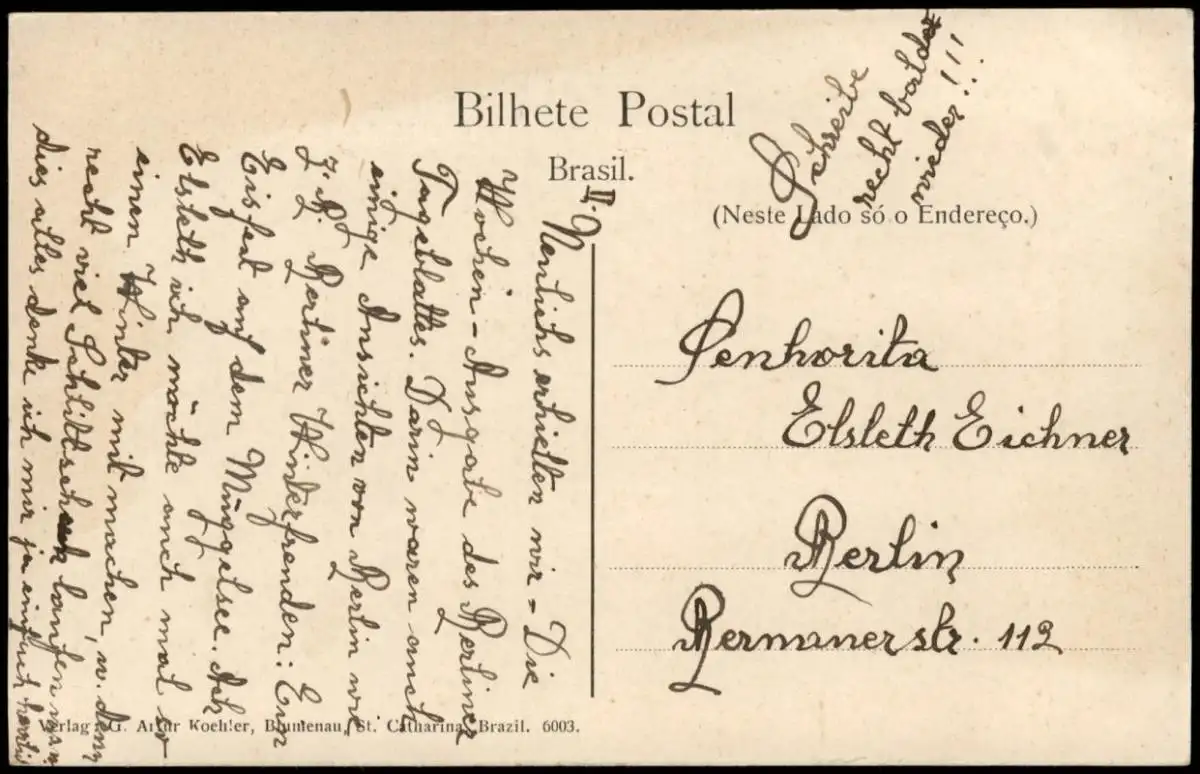 Bilhete Postal
Brasil.
(Neste Lado só o Endereço.)
Schreibe
recht balde
wieder!!!
II.
Neulichs erhielten wir - Die
Wochen - Ausgabe des Berliner
Tageblattes. Darin waren auch
einige Ansichten von Berlin wie
z. B. Berliner Winterfreuden: Ein
Eisfest auf dem Müggelsee. Ach
Elsleth ich möchte auch mal so
einen Winter mit machen, u. dann
recht viel Schlittschuh laufen
dies alles denke ich mir ja einfach herrlich
Senhorita
Elsleth Eichner
Berlin
Bermanerstr. 112
Verlag: G. Artur Koehler, Blumenau, St. Catharina, Brazil. 6003.